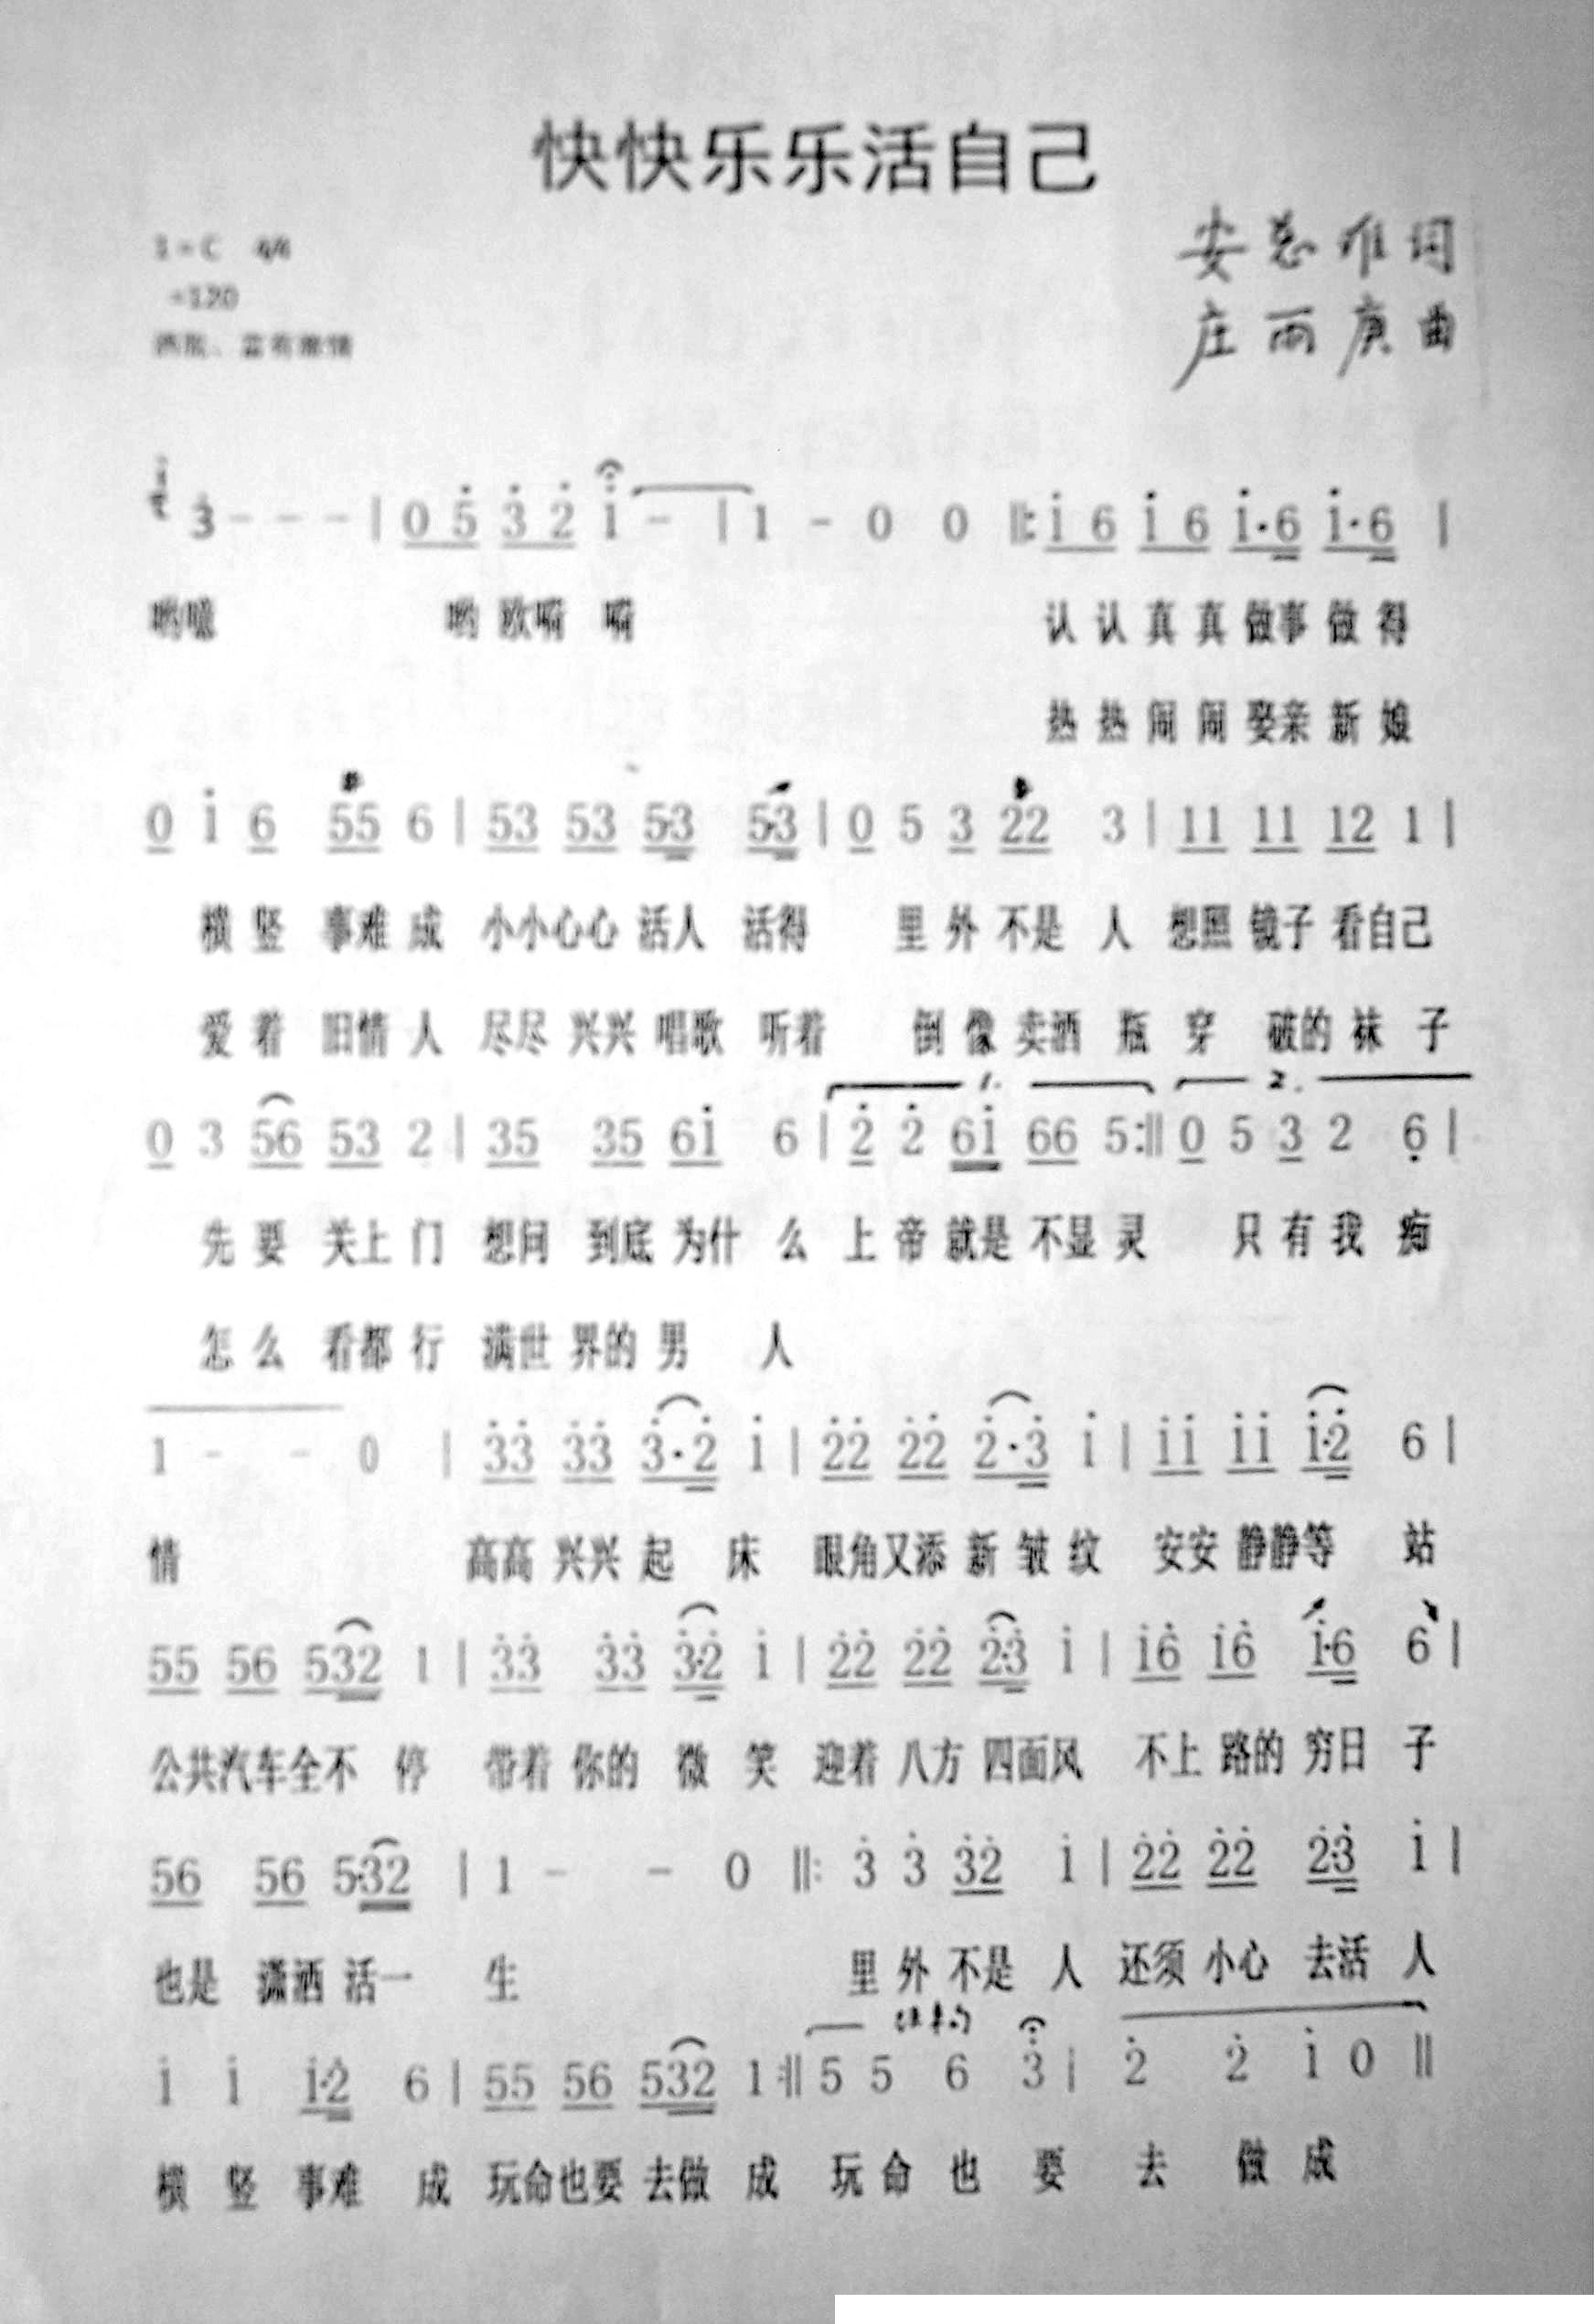 快快乐乐活自己
1=C 4/4
=120
词
庄雨庚曲
3 - - - | 0 5 3 2 1 - | 1 - 0 0 ‖: i 6 i 6 i·6 i·6 |
哟 哟 欧 认认真真做事做得
热热闹闹娶亲新娘
0 i 6 55 6 | 53 53 53 53 | 0 5 3 22 3 | 11 11 12 1 |
横竖 事难成 小小心心 活人 活得 里外不是人 想照 镜子 看自己
爱着 旧情人 尽尽 兴兴 唱歌 听着 倒像卖酒瓶 穿 破的袜子
1. 2.
0 3 56 53 2 | 35 35 6i 6 | 2 2 6i 66 5 :‖ 0 5 3 2 6 |
先要 关上门 想问 到底 为什么 上帝就是不显灵 只有我痴
怎么 看都行 满世 界的男人
1 - - 0 | 33 33 3·2 i | 22 22 2·3 i | ii ii i·2 6 |
情 高高 兴兴 起床 眼角又添新皱纹 安安 静静等站
55 56 532 1 | 33 33 3·2 i | 22 22 2·3 i | i6 i6 i·6 6 |
公共汽车全不停 带着 你的 微笑 迎着 八方 四面风 不上 路的 穷日子
56 56 5·32 | 1 - - 0 ‖: 3 3 32 i | 22 22 2·3 i |
也是 潇洒 活一 生 里外不是人 还须 小心 去活人
i i i·2 6 | 55 56 532 1 :‖ 5 5 6 3 | 2 2 i 0 ‖
横竖 事难成 玩命也要 去做成 玩命也要 去做成